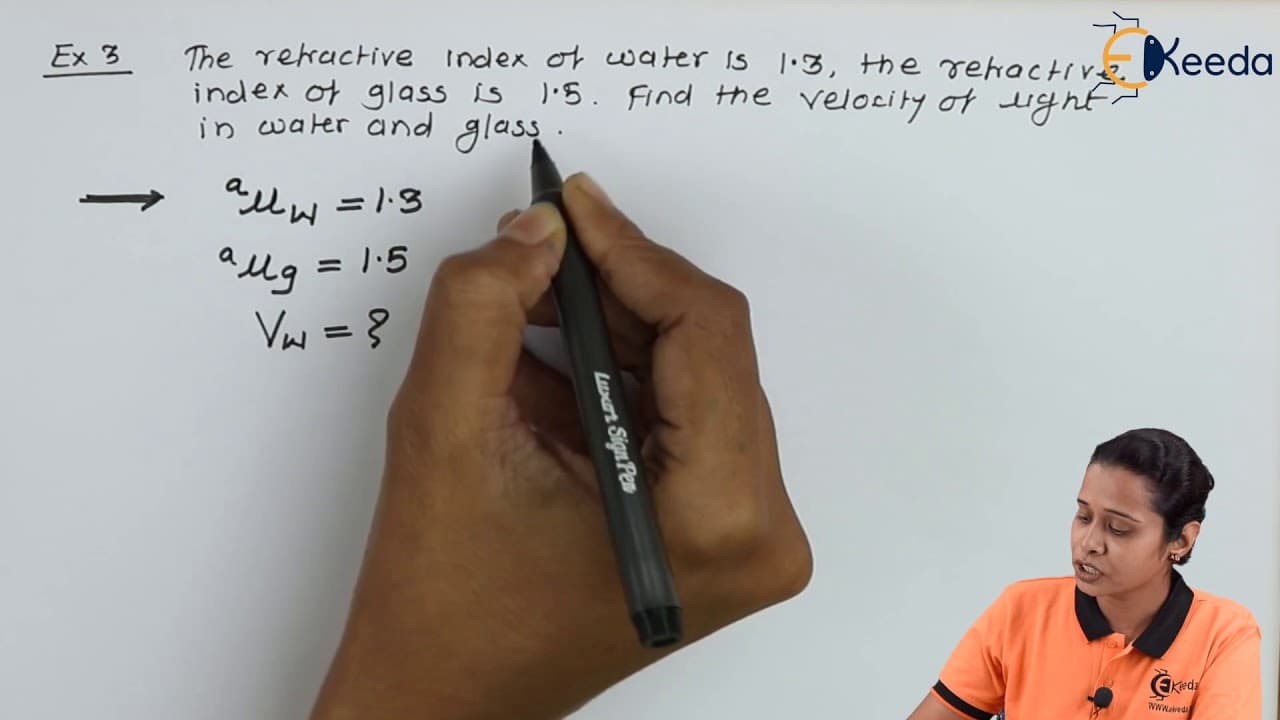 Ex 3 The refractive index of water is 1.3, the refractive
index of glass is 1.5. Find the velocity of light
in water and glass.
→ aμw = 1.3
aμg = 1.5
Vw = ?
EKeeda
Luxor Sign Pen
EKeeda